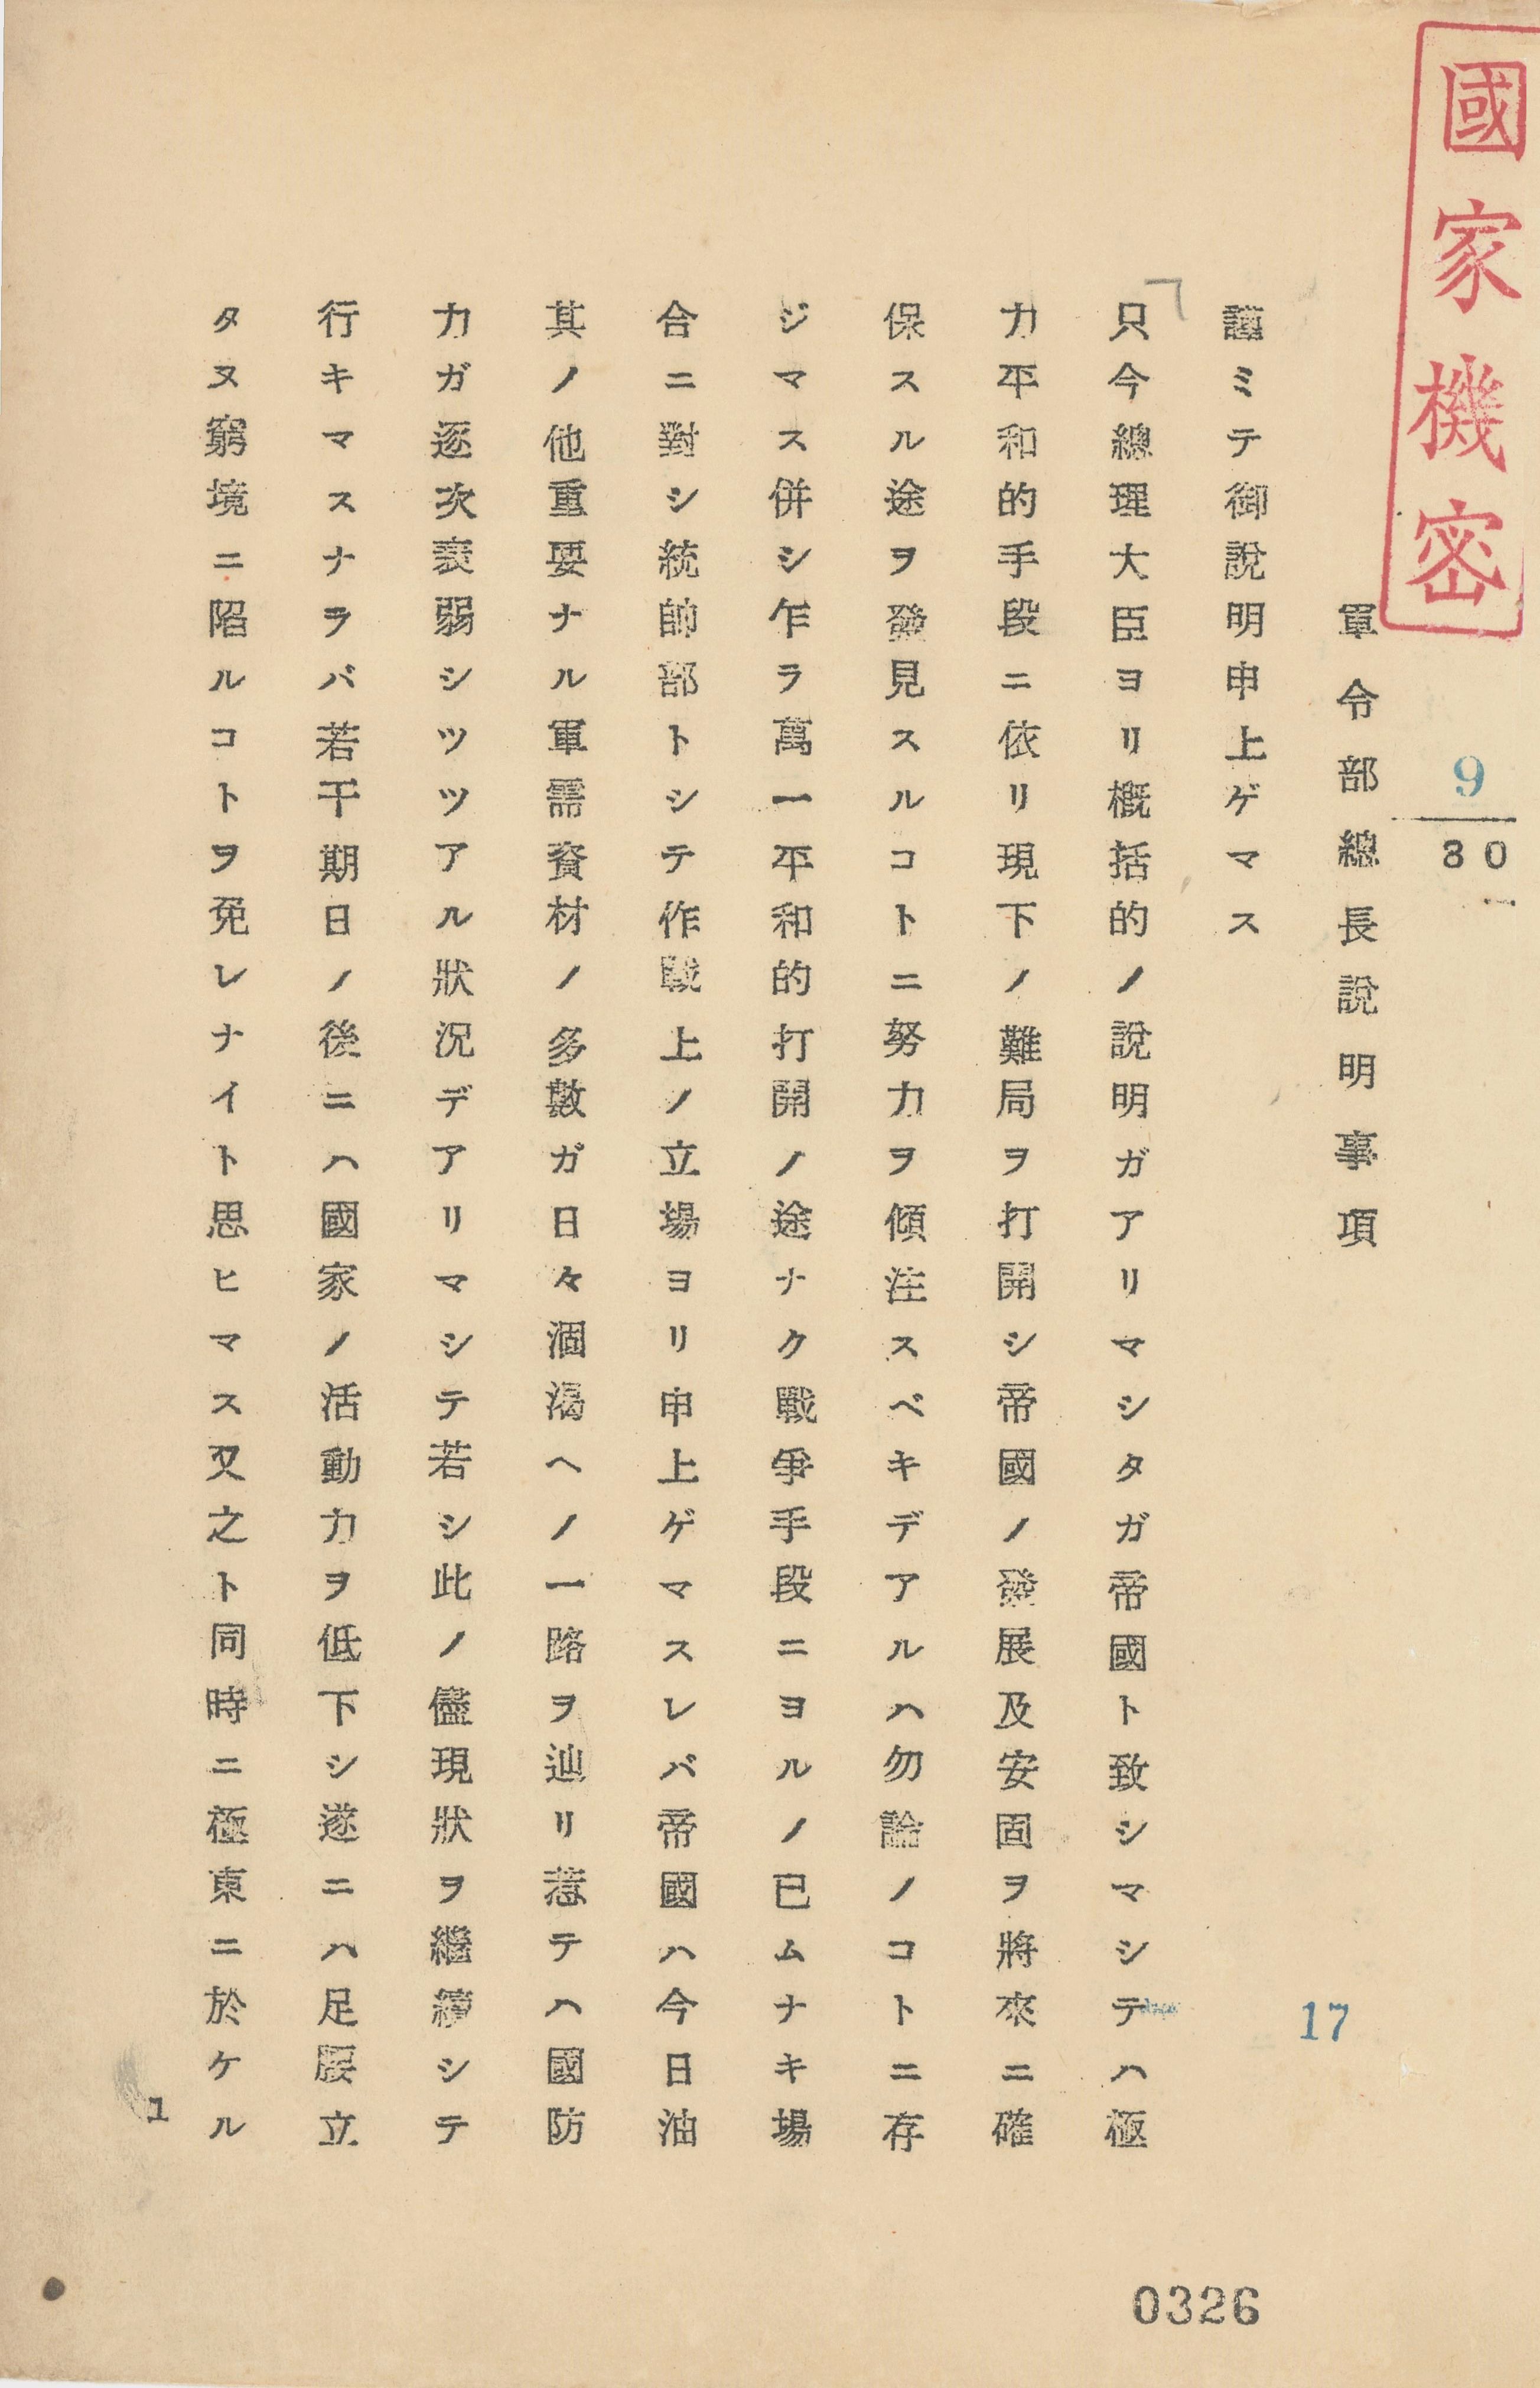 國家機密
9
30
軍令部總長說明事項
17
謹ミテ御說明申上ゲマス
只今總理大臣ヨリ概括的ノ說明ガアリマシタガ帝國ト致シマシテハ極
力平和的手段ニ依リ現下ノ難局ヲ打開シ帝國ノ發展及安固ヲ將來ニ確
保スル途ヲ發見スルコトニ努力ヲ傾注スベキデアルハ勿論ノコトニ存
ジマス併シ乍ラ萬一平和的打開ノ途ナク戰爭手段ニヨルノ已ムナキ場
合ニ對シ統帥部トシテ作戰上ノ立場ヨリ申上ゲマスレバ帝國ハ今日油
其ノ他重要ナル軍需資材ノ多數ガ日々涸渴ヘノ一路ヲ辿リ惹テハ國防
力ガ逐次衰弱シツツアル狀況デアリマシテ若シ此ノ儘現狀ヲ繼續シテ
行キマスナラバ若干期日ノ後ニハ國家ノ活動力ヲ低下シ遂ニハ足腰立
タヌ窮境ニ陷ルコトヲ免レナイト思ヒマス又之ト同時ニ極東ニ於ケル
1
0326